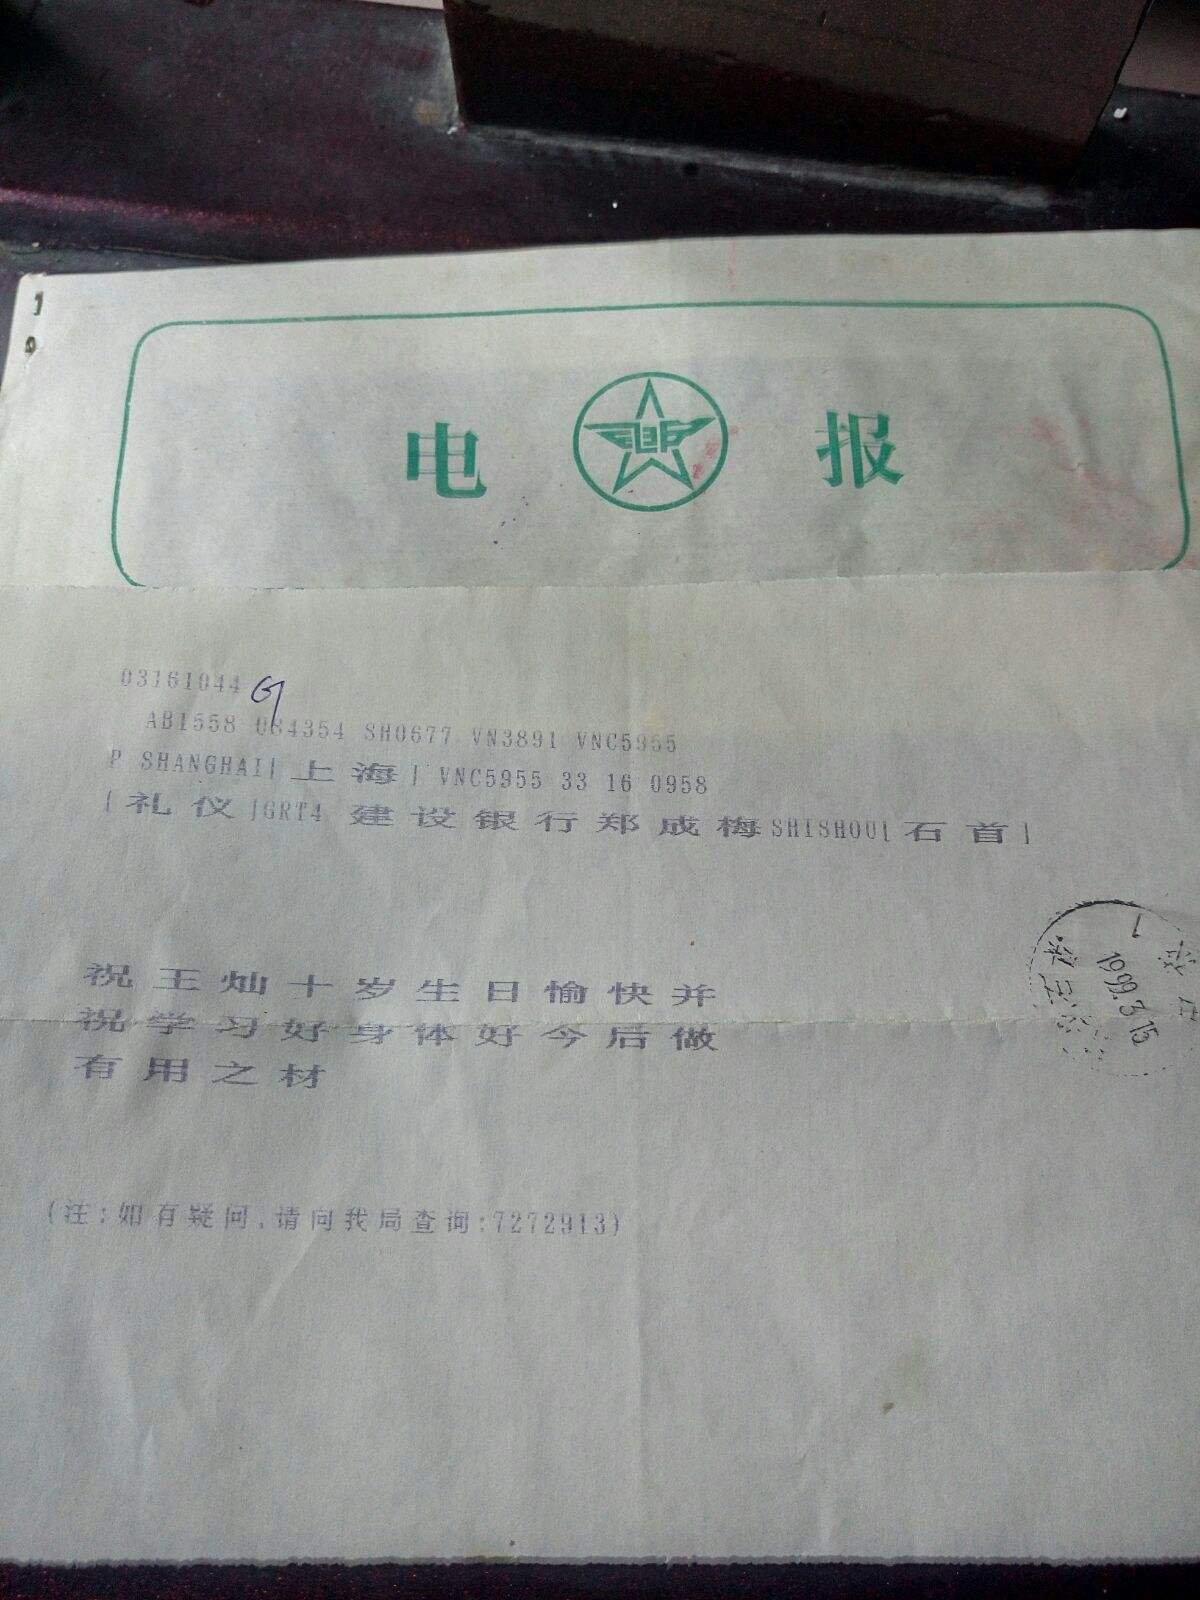 电 报
03161044 G
AB1558 064354 SH0677 VN3891 VNC5955
P SHANGHAI[上海] VNC5955 33 16 0958
[礼仪]GRT4 建设银行郑成梅SHISHOU[石首]
祝王灿十岁生日愉快并
祝学习好身体好今后做
有用之材
(注:如有疑问,请向我局查询:7272913)
1999.3.15